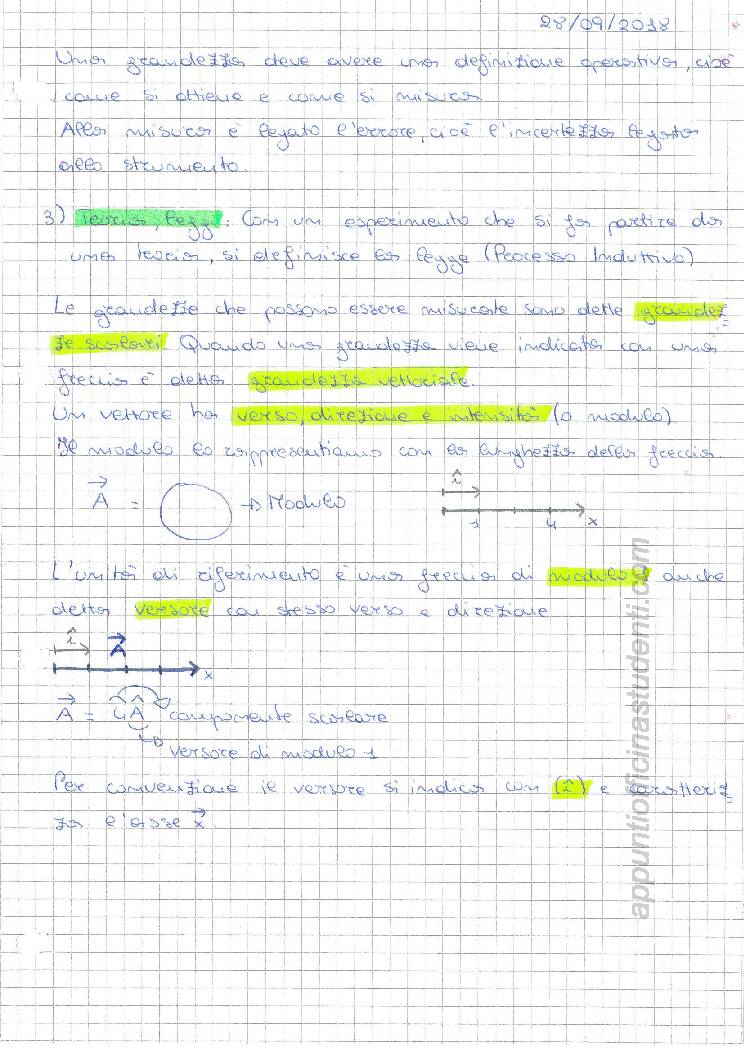 28/09/2018
Una grandezza deve avere una definizione operativa, cioè
come si ottiene e come si misura
Alla misura è legato l'errore, cioè l'incertezza legata
allo strumento.
3) Teoria, legge: Con un esperimento che si fa partire da
una teoria, si definisce la legge (Processo Induttivo)
Le grandezze che possono essere misurate sono dette grandez
ze scalari. Quando una grandezza viene indicata con una
freccia è detta grandezza vettoriale.
Un vettore ha verso, direzione e intensità (o modulo)
Il modulo lo rappresentiamo con la lunghezza della freccia
A⃗ = → Modulo
î
1 4 x
L'unità di riferimento è una freccia di modulo 1 anche
detta versore con stesso verso e direzione
î A⃗
x
A⃗ = 4Â componente scalare
versore di modulo 1
Per convenzione il versore si indica con (î) e caratteriz
za l'asse x⃗
appuntiofficinastudenti.com